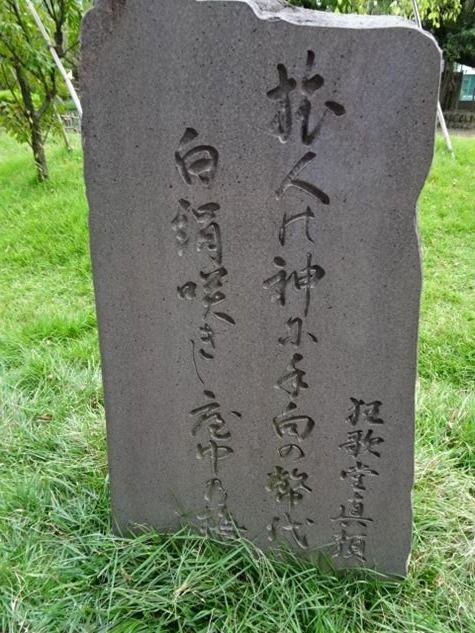 狂歌堂眞顔
旅人の神に手向の幣代
白絹咲きし庭中の梅